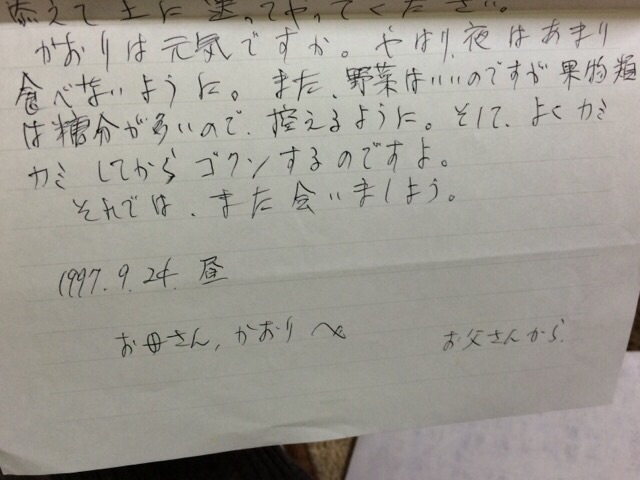 添えて土に塗ってやってください。
かおりは元気ですか。やはり、夜はあまり
食べないように。また、野菜はいいのですが果物類
は糖分が多いので、控えるように。そして、よくカミ
カミしてからゴクンするのですよ。
それでは、また会いましょう。
1997.9.24. 昼
お母さん, かおりへ
お父さんから.